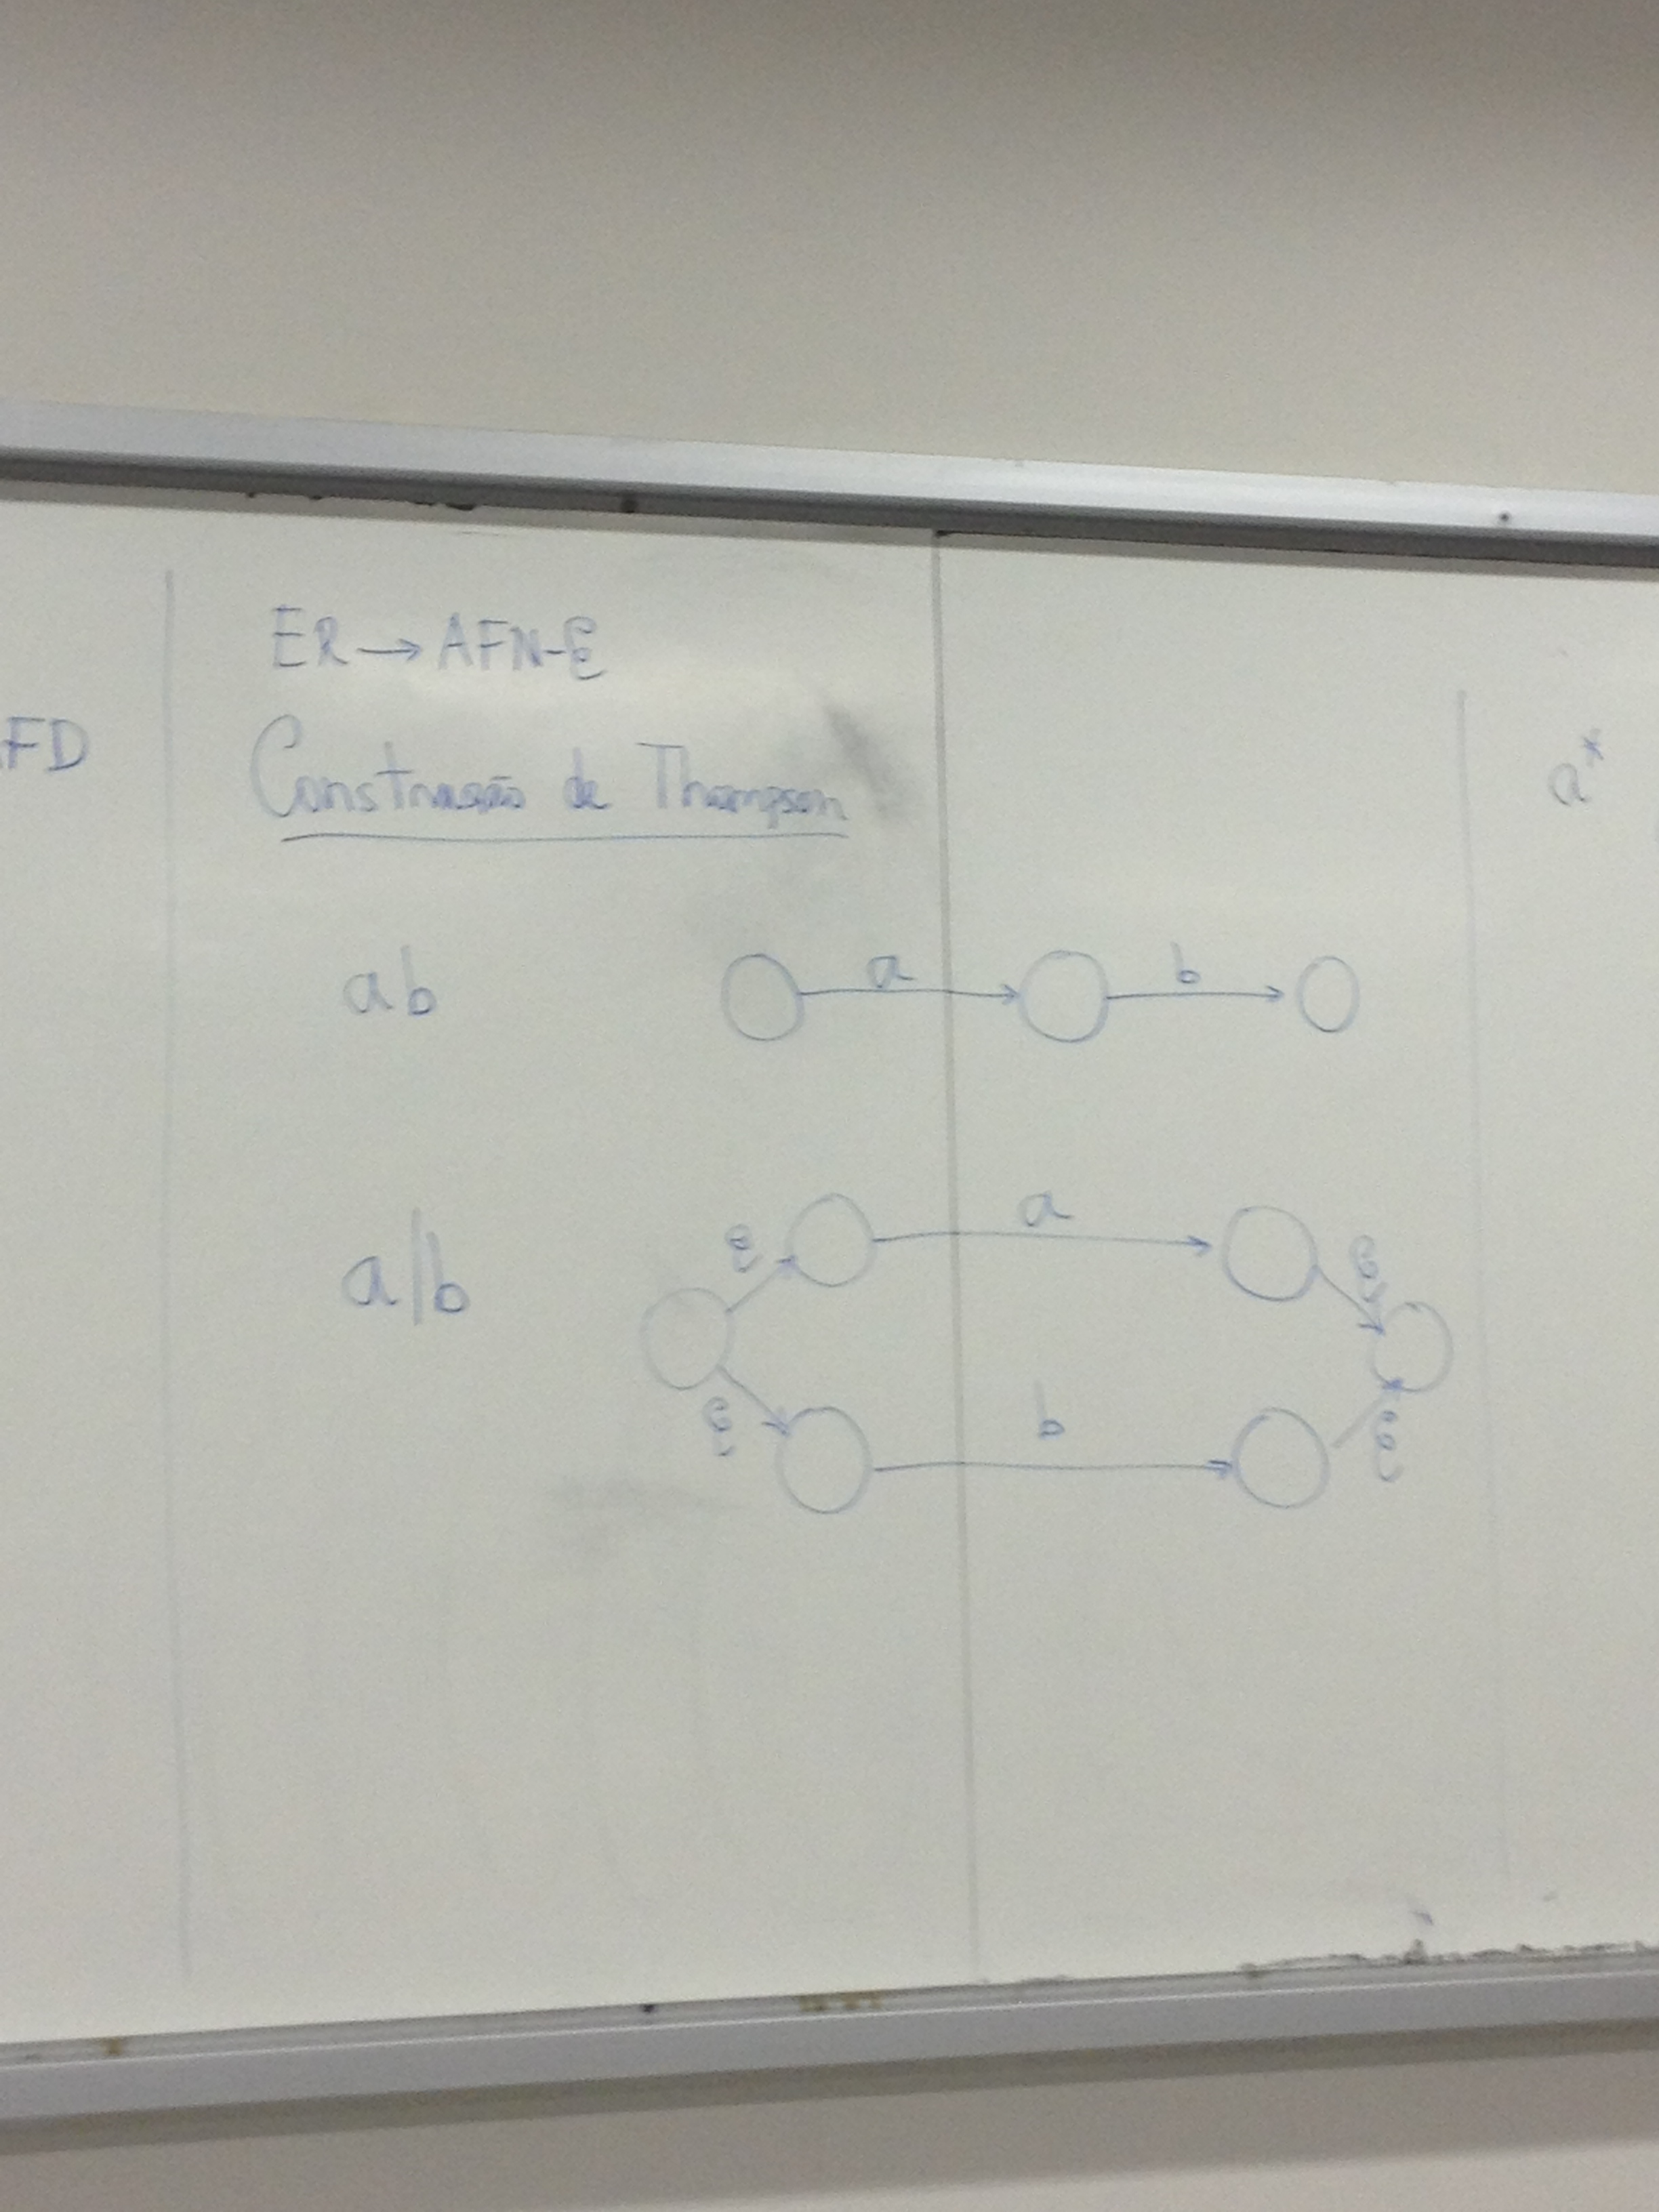 ER → AFN-ε
FD
Construção de Thompson
a*
ab
a b
a|b
ε a ε
ε b ε